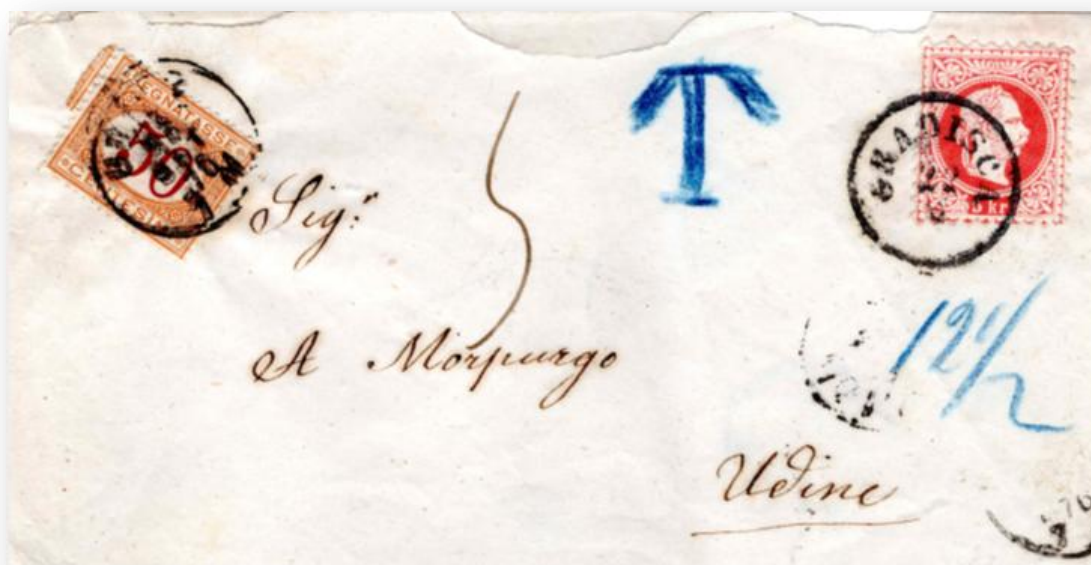 SEGNATASSE
50
CENTESIMI
T
GRADISCA
5 kr
Sigr
5
A Morpurgo
12 1/2
Udine